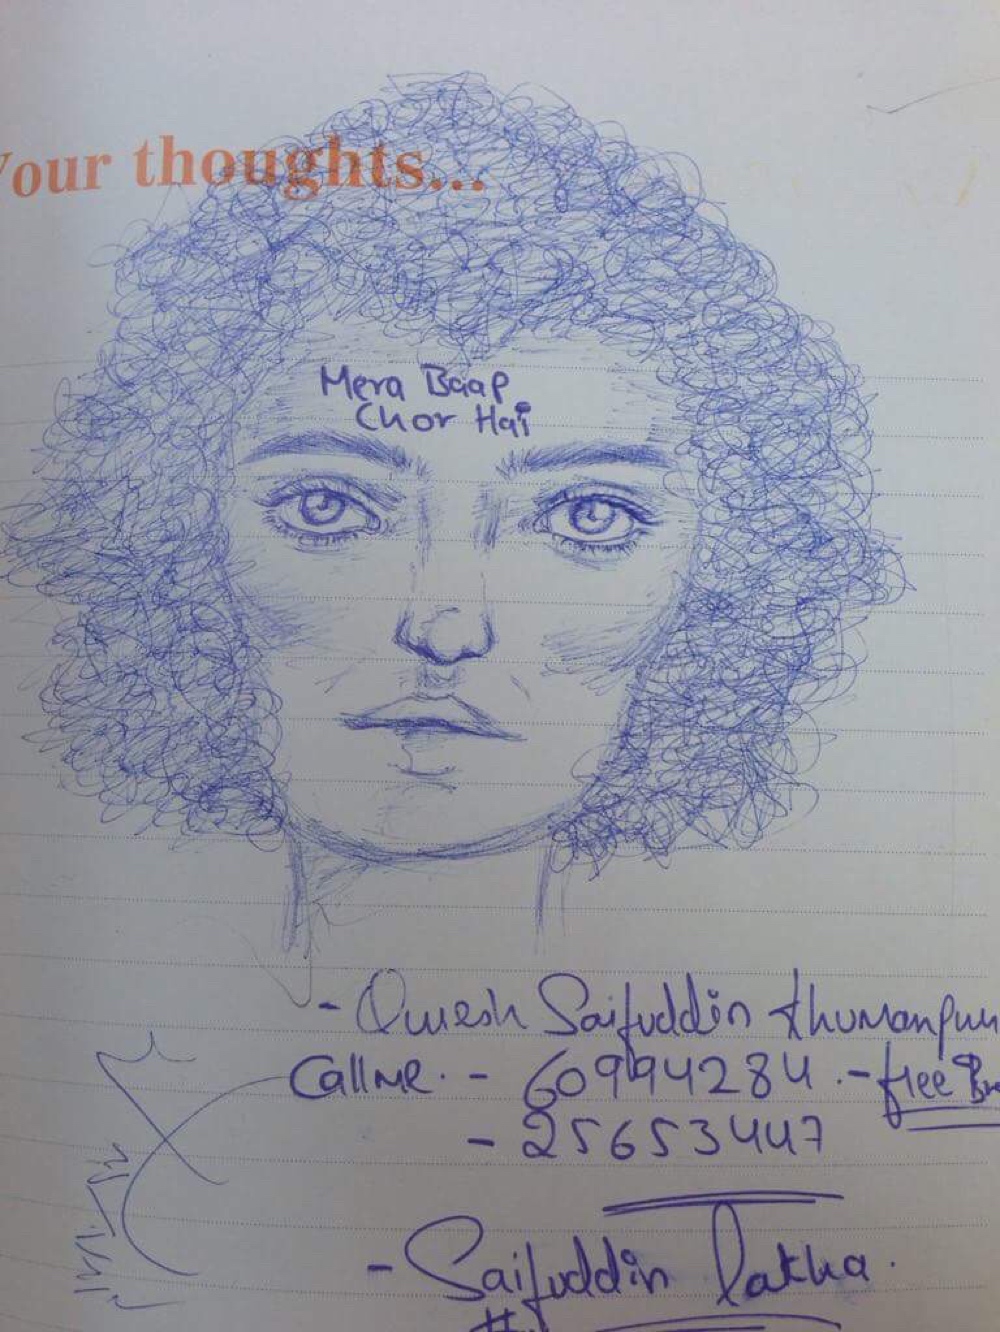 Your thoughts...
Mera Baap
Chor Hai
- Saifuddin
Call me. - 60994284 - free
- 25653447
- Saifuddin Lakha.